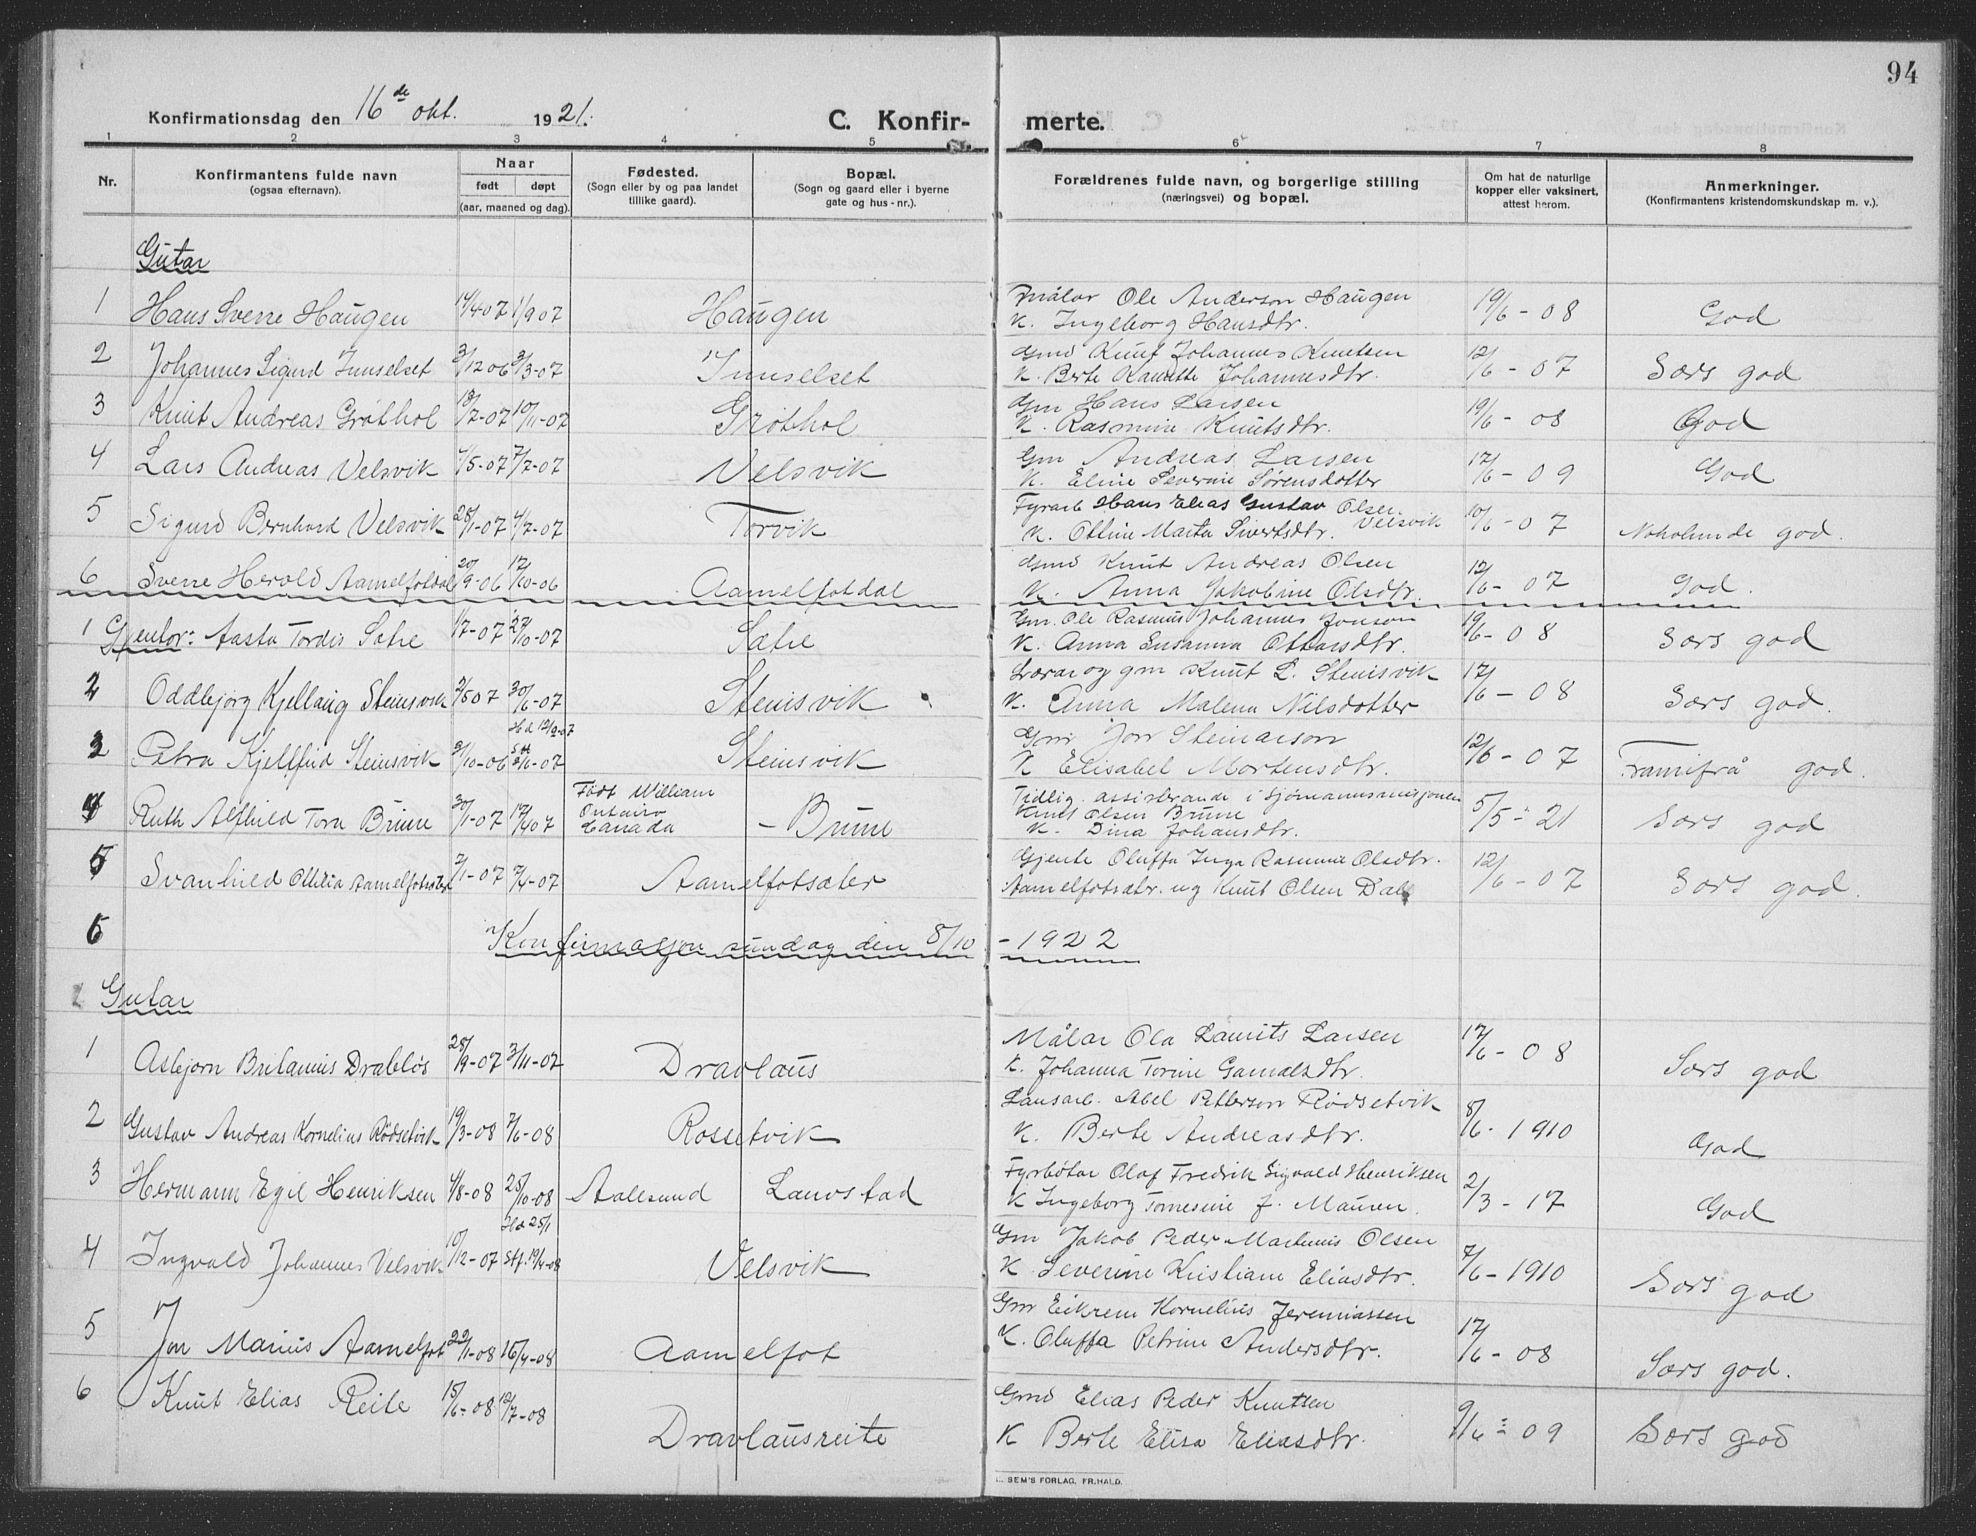 94
Konfirmationsdag den 16de okt. 1921.
C. Konfir- merte.
1 2 3 4 5 6 7 8
Nr.
Konfirmantens fulde navn
(ogsaa efternavn).
Naar
født døpt
(aar, maaned og dag).
Fødested.
(Sogn eller by og paa landet
tillike gaard).
Bopæl.
(Sogn og gaard eller i byerne
gate og hus-nr.).
Forældrenes fulde navn, og borgerlige stilling
(næringsvei) og bopæl.
Om hat de naturlige
kopper eller vaksinert,
attest herom.
Anmerkninger.
(Konfirmantens kristendomskundskap m. v.).
Gutar
1 Hans Sverre Haugen 14/4 07 1/9 07 Haugen Målar Ole Anderson Haugen 19/6-08 God
K. Ingeborg Hansdtr.
2 Johannes Sigurd Innselset 3/12 06 3/3-07 Innselset Gmd Knut Johannes Knutsen 12/6-07 Særs god
K. Berte Johannesdtr.
3 Knut Andreas Grøthol 18/7-07 10/11-07 Grøthol Gm Hans Larsen 19/6-08 God
K. Rasmine Knutsdtr.
4 Lars Andreas Velsvik /5-07 7/7-07 Velsvik Gm Andreas Larsen 17/6-09 God
K. Eline Severine Sørensdotter
5 Sigurd Bernhard Velsvik 28/1-07 4/7-07 Torvik Fyrarb Hans Elias Gustav Olsen Velsvik 10/6-07 Nokolunde god.
K. Ottine Marta Sivertsdtr.
6 Sverre Herold Aamelfotdal 20/9-06 17/10-06 Aamelfotdal Gmd Knut Andreas Olsen 12/6-07 God.
K. Anna Jakobine Olsdtr.
1 Gjentor: Aasta Tordis Sætre 1/7-07 27/10-07 Sætre Gm. Ole Rasmus Johannes Jonson 19/6-08 Særs god
K. Anna Susanna Ottarsdtr.
2 Oddbjørg Kjellaug Steinsvik 2/5 07 30/6-07 Steinsvik Lærar og gm Knut L. Steinsvik 17/6-08 Særs god.
K. Anna Malena Nilsdotter
3 Petra Kjellfrid Steinsvik 9/10-06 Hd 12/2-07 Steinsvik Gm Jon Steinarson 12/6-07 Framifrå god.
K Elisabet Mortensdtr.
4 Ruth Alfhild Tora Brune 30/1-07 17/4 07 Født William Ontairo Canada - Brune Tidlig. assisterande i Sjømannsmisjonen 5/5-21 Særs god
Knut Olsen Brune
K. Dina Johansdtr.
5 Svanhild Ottilia Aamelfotsæter 7/1-07 7/4-07 Aamelfotsæter Gjente Oluffa Inga Rasmine Olsdtr. 12/6-07 Særs god.
Aamelfotsætr. og Knut Olsen Dale
6 Konfirmasjon sundag den 8/10 - 1922
Gutar
1 Asbjørn Britanius Drabløs 28/9-07 3/11-07 Dravlaus Målar Ola Laurits Larsen 17/6-08 Særs god
K. Johanna Torine Gamalsdtr.
2 Gustav Andreas Kornelius Rødsetvik 19/3-08 7/6-08 Rossetvik Lausarb. Abel Petterson Rødsetvik 8/6-1910 God
K. Berte Andreasdtr.
3 Hermann Egil Henriksen 4/8-08 25/10-08 Aalesund Lauvstad Fyrbøtar Olaf Fredrik Sigvald Henriksen 2/3-17 God
K Ingeborg Tomesine f. Mauren.
4 Ingvald Johannes Velsvik 10/12-07 Hd 25/1 Stf. 19/4-08 Velsvik Gm Jakob Peder Martinus Olsen 7/6-1910 Særs god
K. Severine Kristiane Eliasdtr.
5 Jon Marius Aamelfot 22/1-08 16/4-08 Aamelfot Gm Eikrem Kornelius Jeremiassen 17/6-08 Særs god.
K. Oluffa Petrine Andersdtr.
6 Knut Elias Reite 15/6-08 12/7-08 Dravlausreite Gmd Elias Peder Knutsen 9/6-09 Særs god
K Berte Elisa Eliasdtr.
SEM'S FORLAG, FR.HALD.